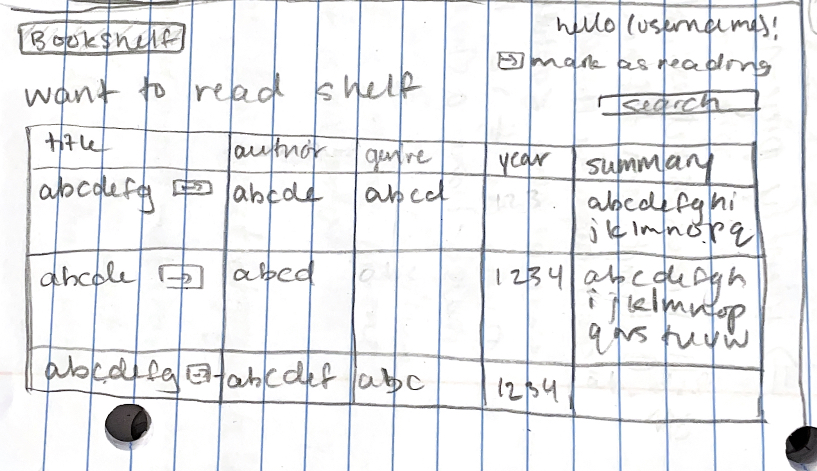 Bookshelf
hello (username)!
mark as reading
want to read shelf
search
title author genre year summary
abcdefg abcde abcd abcdefghi
jklmnopq
abcde abcd 1234 abcdefgh
ijklmnop
qrstuvw
abcdefg abcdef abc 1234